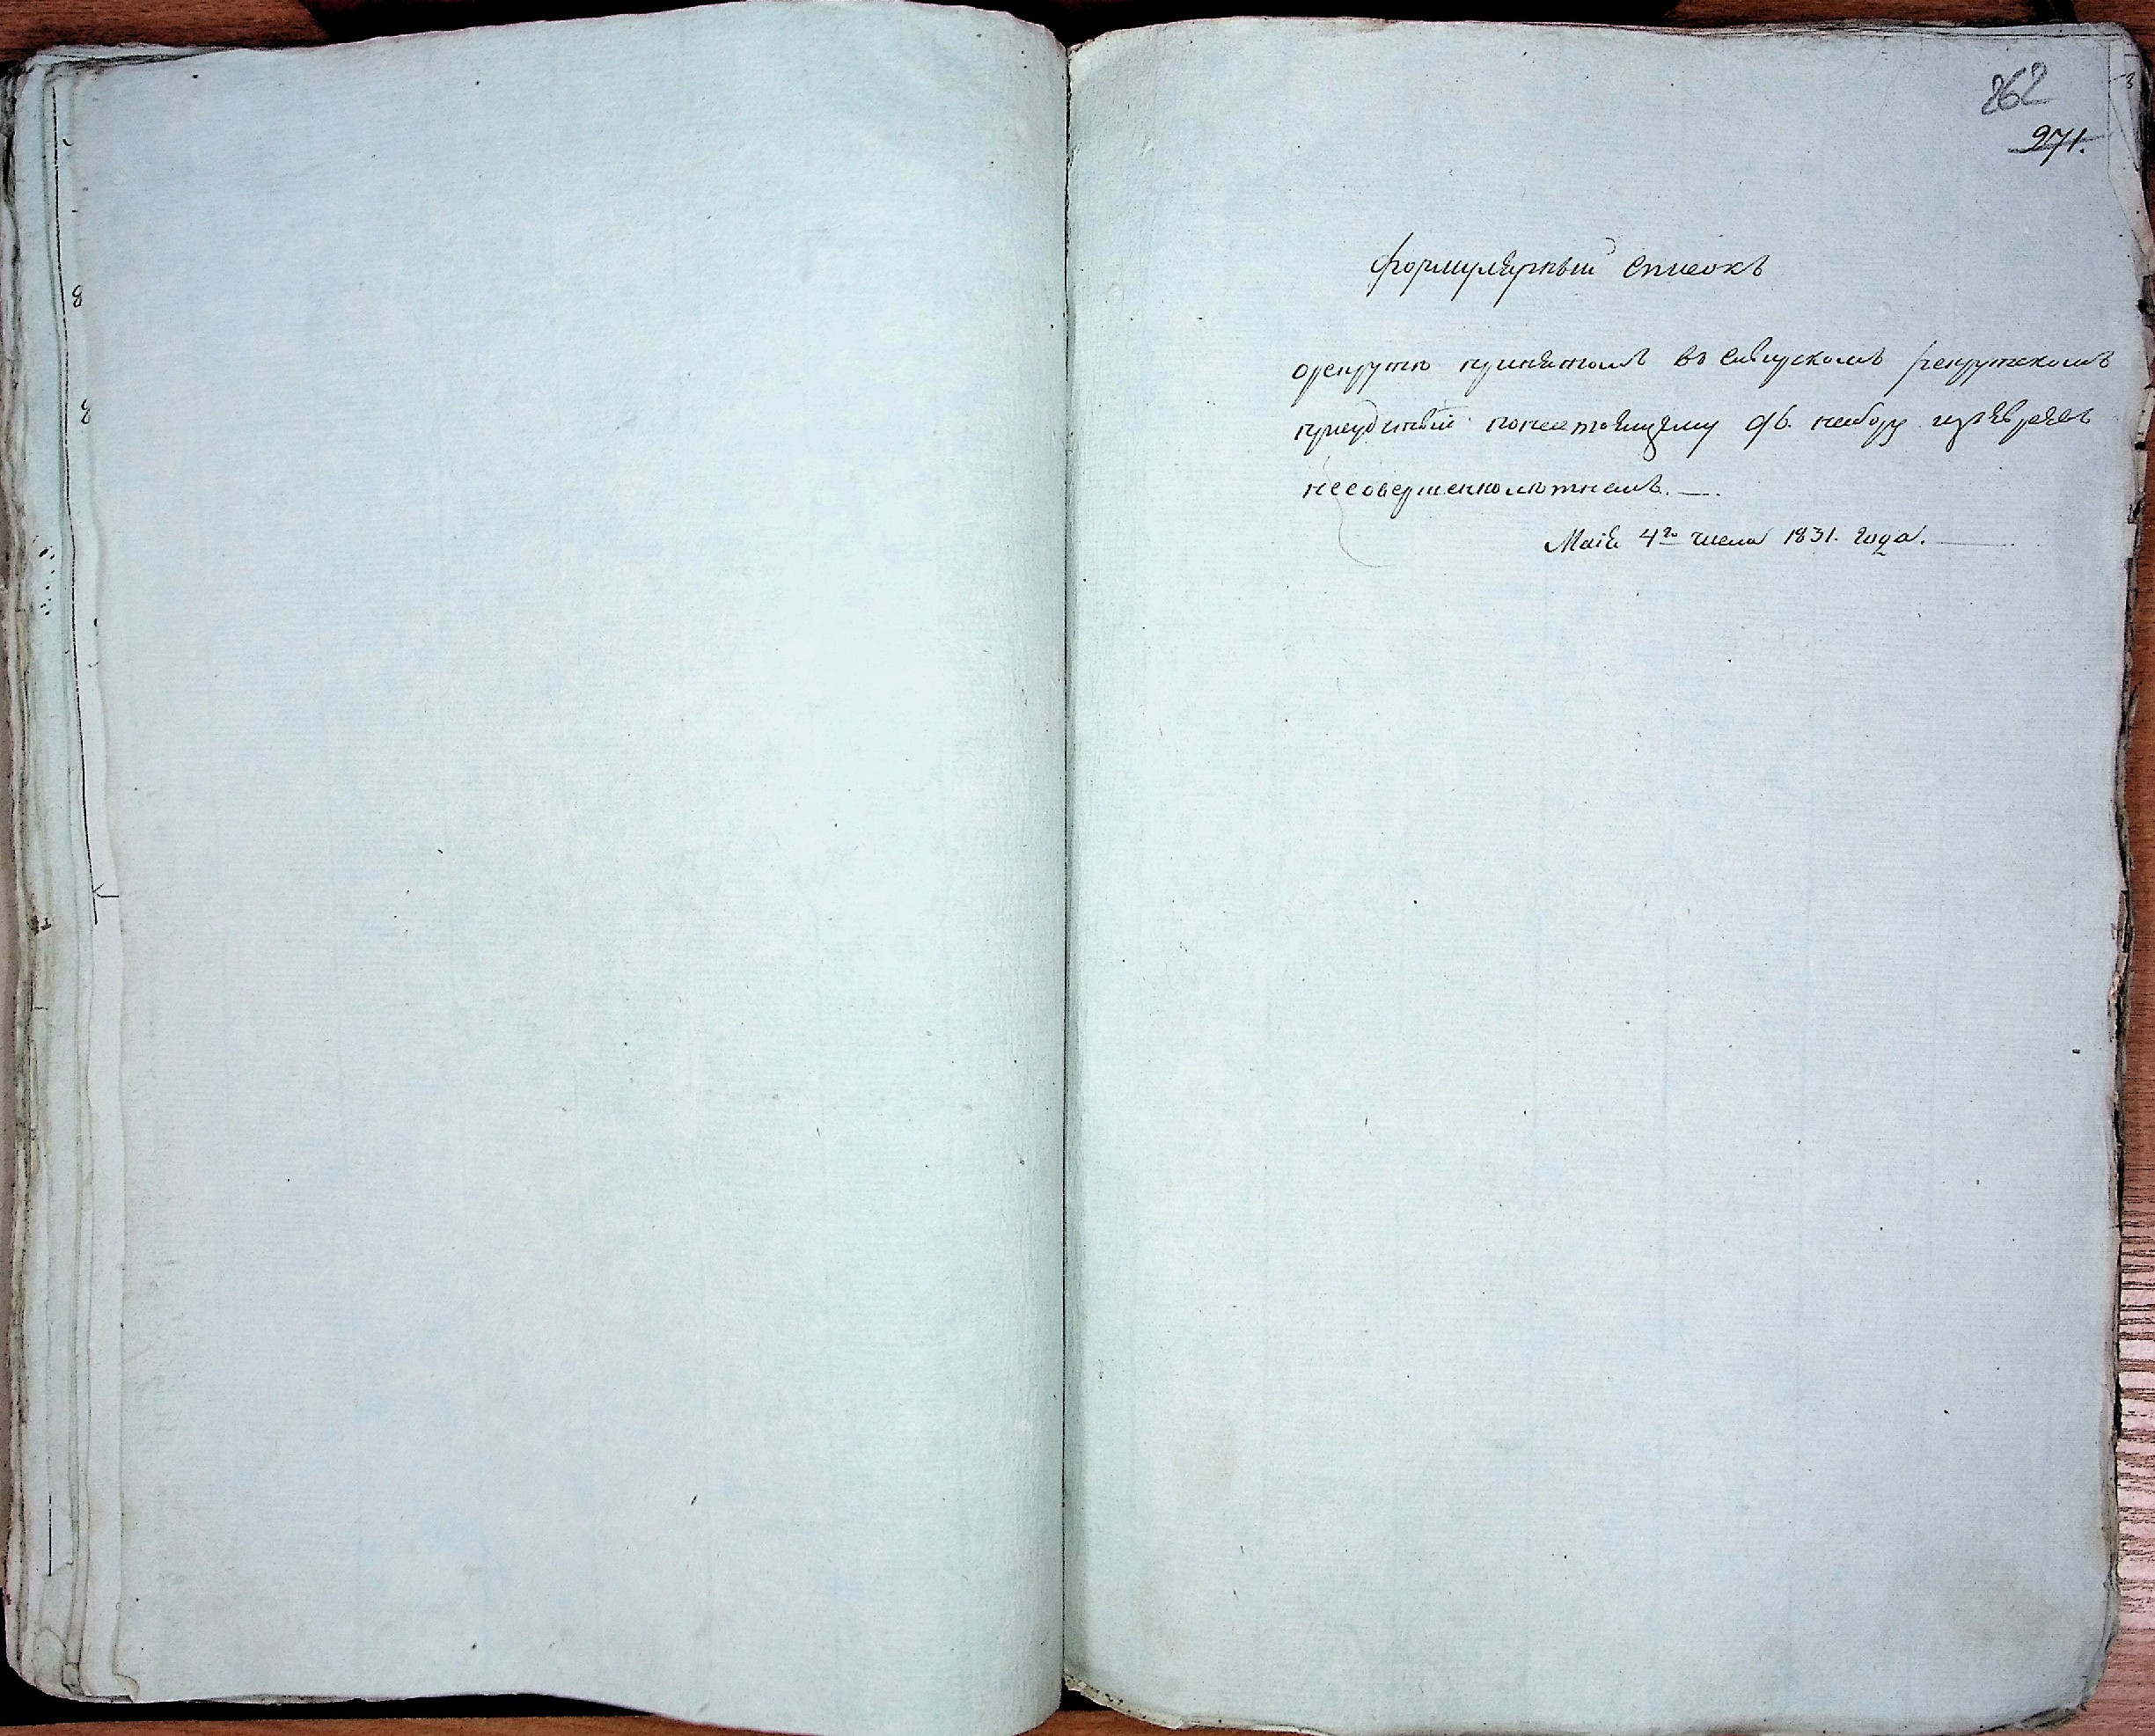 262
271.
Формулярный списокъ
орекрутѣ принятомъ въ рекрутскомъ
присудствіи понастоящему 96. набору изъевреевъ
несовершеннолѣтнемъ.
Маія 4го числа 1831. года.